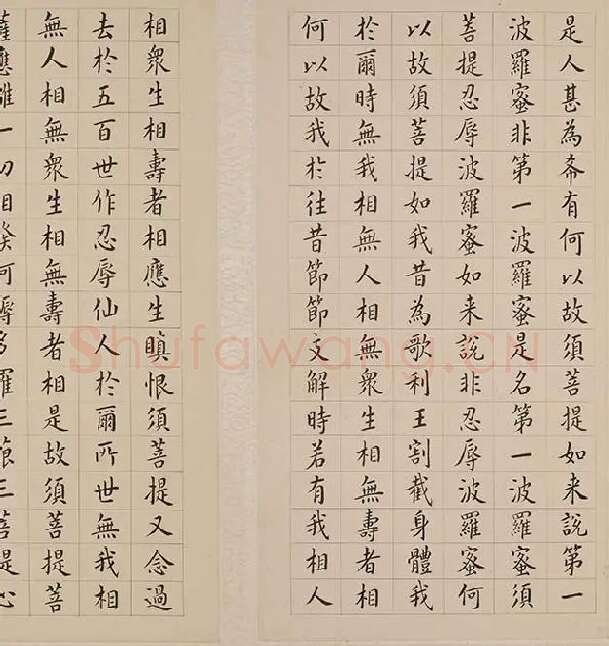 是人甚為希有何以故須菩提如来說第一
波羅蜜非第一波羅蜜是名第一波羅蜜須
菩提忍辱波羅蜜如来說非忍辱波羅蜜何
以故須菩提如我昔為歌利王割截身體我
於爾時無我相無人相無衆生相無壽者相
何以故我於往昔節節支解時若有我相人
相衆生相壽者相應生瞋恨須菩提又念過
去於五百世作忍辱仙人於爾所世無我相
無人相無衆生相無壽者相是故須菩提菩
薩應離一切相發阿耨多羅三藐三菩提心
Shufawang.CN